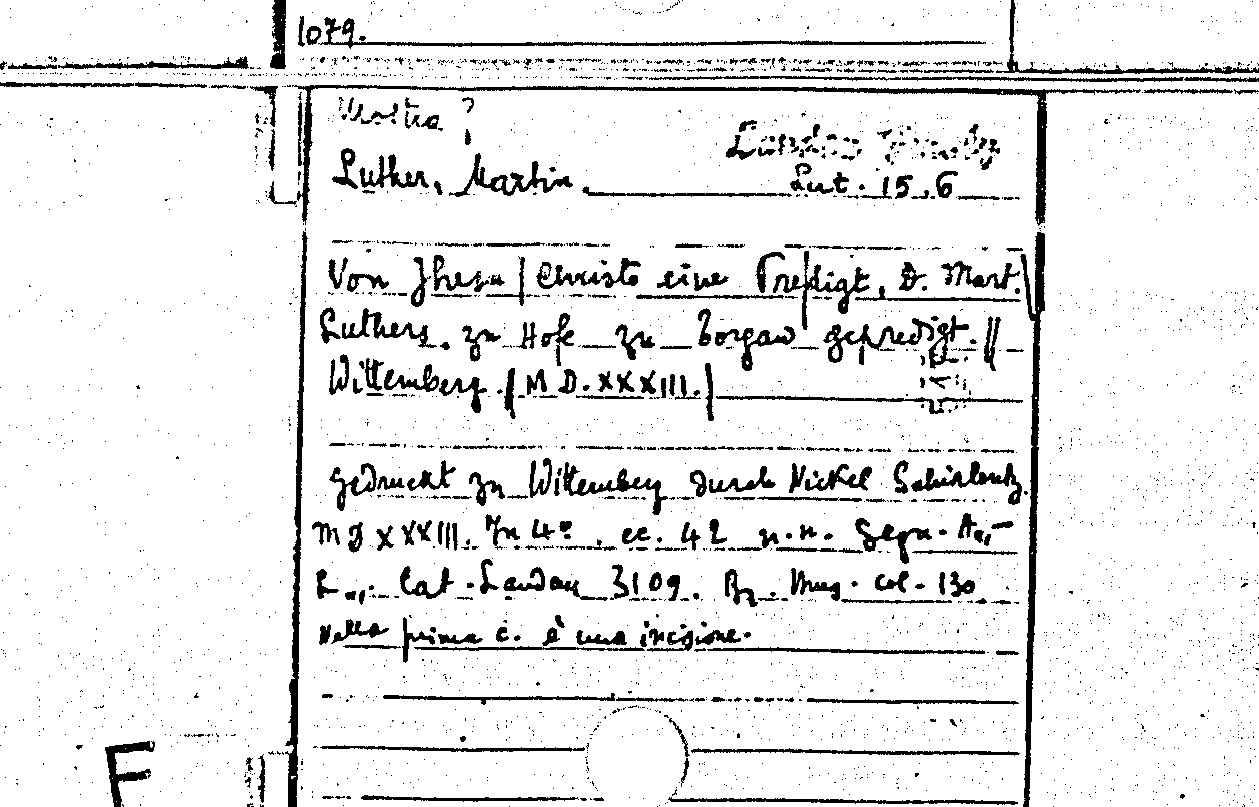 1079.
Mostra?
Landau Finaly
Luther, Martin.
Lut. 15.6
Von Jhesu | Christo eine Predigt, D. Mart.
Luthers. zu Hofe zu Torgaw gepredigt. ||
Wittemberg. | M D. XXXIII. |
gedruckt zu Wittemberg durch Nickel Schirlentz
M D XXXIII. In 4º. cc. 42 n.n. Segn. A
L Cat. Landau 3109. Br. Mus. col. 130.
Nella prima c. è una incisione.
F